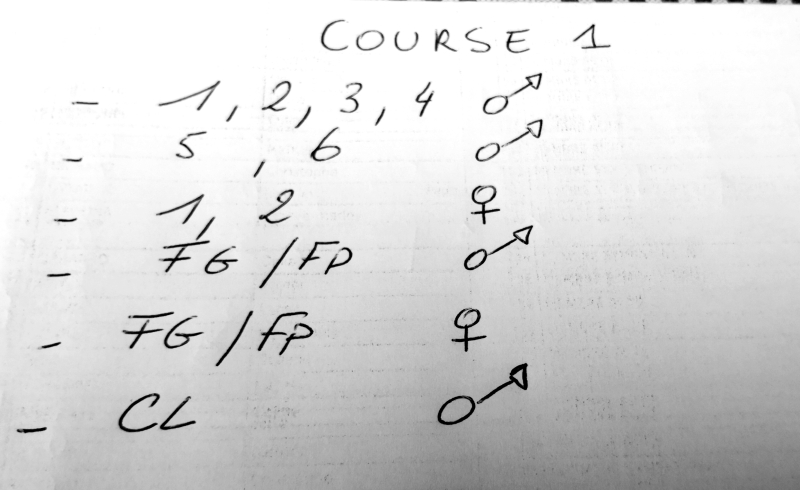 COURSE 1
- 1, 2, 3, 4 ♂
- 5, 6 ♂
- 1, 2 ♀
- FG / FP ♂
- FG / FP ♀
- CL ♂